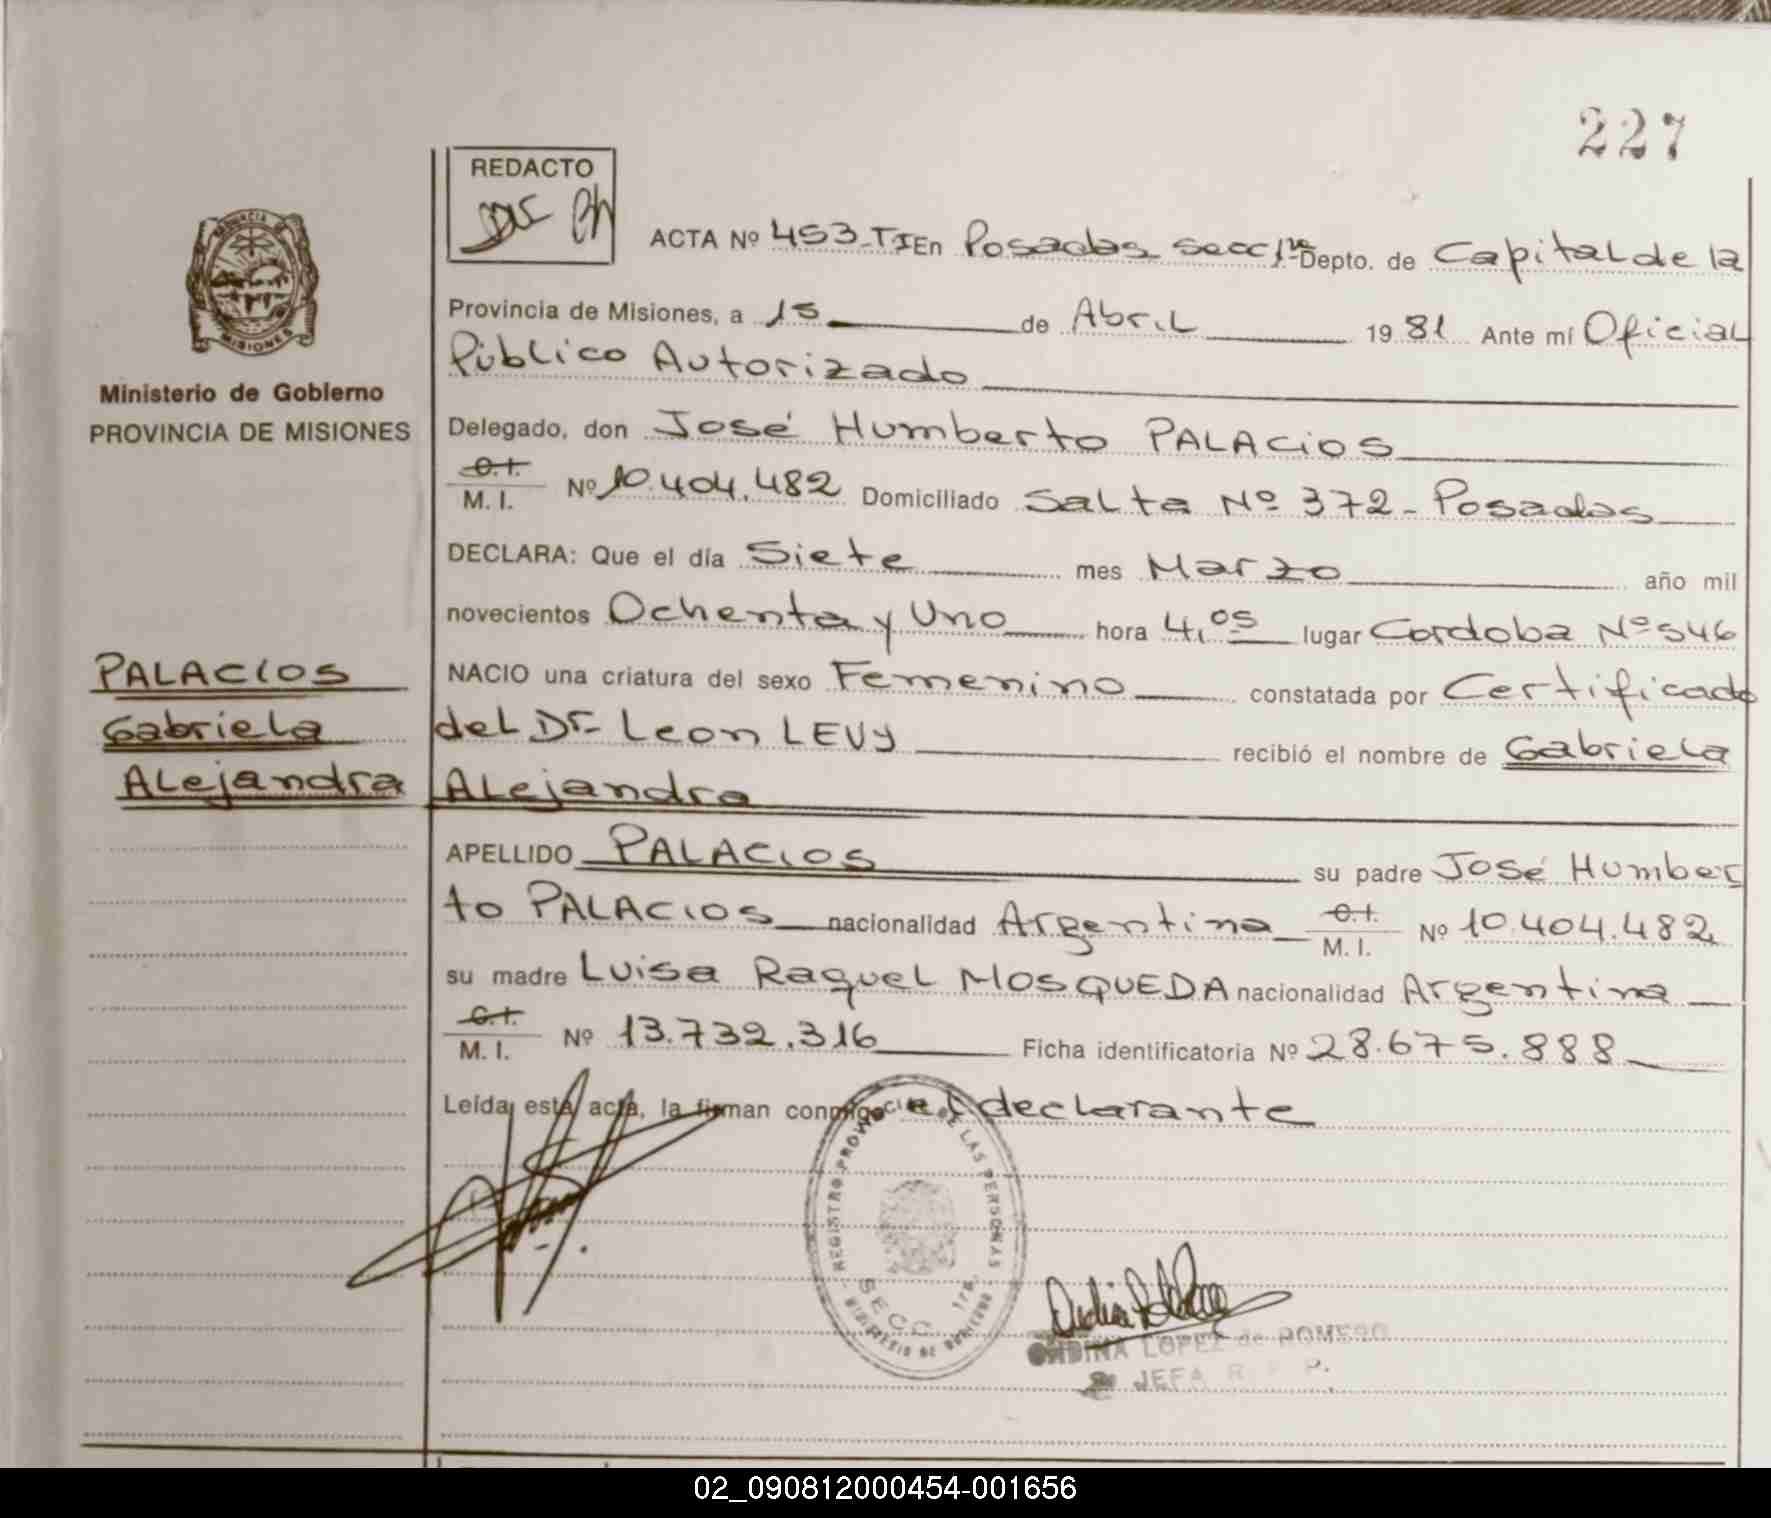 227
REDACTO
ACTA Nº 453-TI En Posadas secc 1ra Depto. de Capital de la
Provincia de Misiones, a 15 de Abril 1981 Ante mí Oficial
Público Autorizado
Ministerio de Gobierno
PROVINCIA DE MISIONES
Delegado, don José Humberto PALACIOS
C.I.
M. I. Nº 10.404.482 Domiciliado Salta Nº 372 - Posadas
DECLARA: Que el día Siete mes Marzo año mil
novecientos Ochenta y Uno hora 4,05 lugar Cordoba Nº 546
PALACIOS
Gabriela
Alejandra
NACIO una criatura del sexo Femenino constatada por Certificado
del Dr- Leon LEVY recibió el nombre de Gabriela
Alejandra
APELLIDO PALACIOS su padre José Humber
to PALACIOS nacionalidad Argentina C.I. M. I. Nº 10.404.482
su madre Luisa Raquel MOSQUEDA nacionalidad Argentina
C.I.
M. I. Nº 13.732.316 Ficha identificatoria Nº 28.675.888
Leída esta acta, la firman conmigo el declarante
REGISTRO PROVINCIAL DE LAS PERSONAS
SECC. 1ra.
MINISTERIO DE GOBIERNO
ONDINA LOPEZ de ROMERO
JEFA R. P. P.
02_090812000454-001656